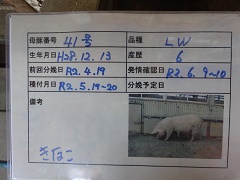 母豚番号 41号 品種 LW
生年月日 H28.12.13 産歴 6
前回分娩日 R2.4.19 発情確認日 R2.6.9~10
種付月日 R2.5.19~20 分娩予定日
備考
きなこ